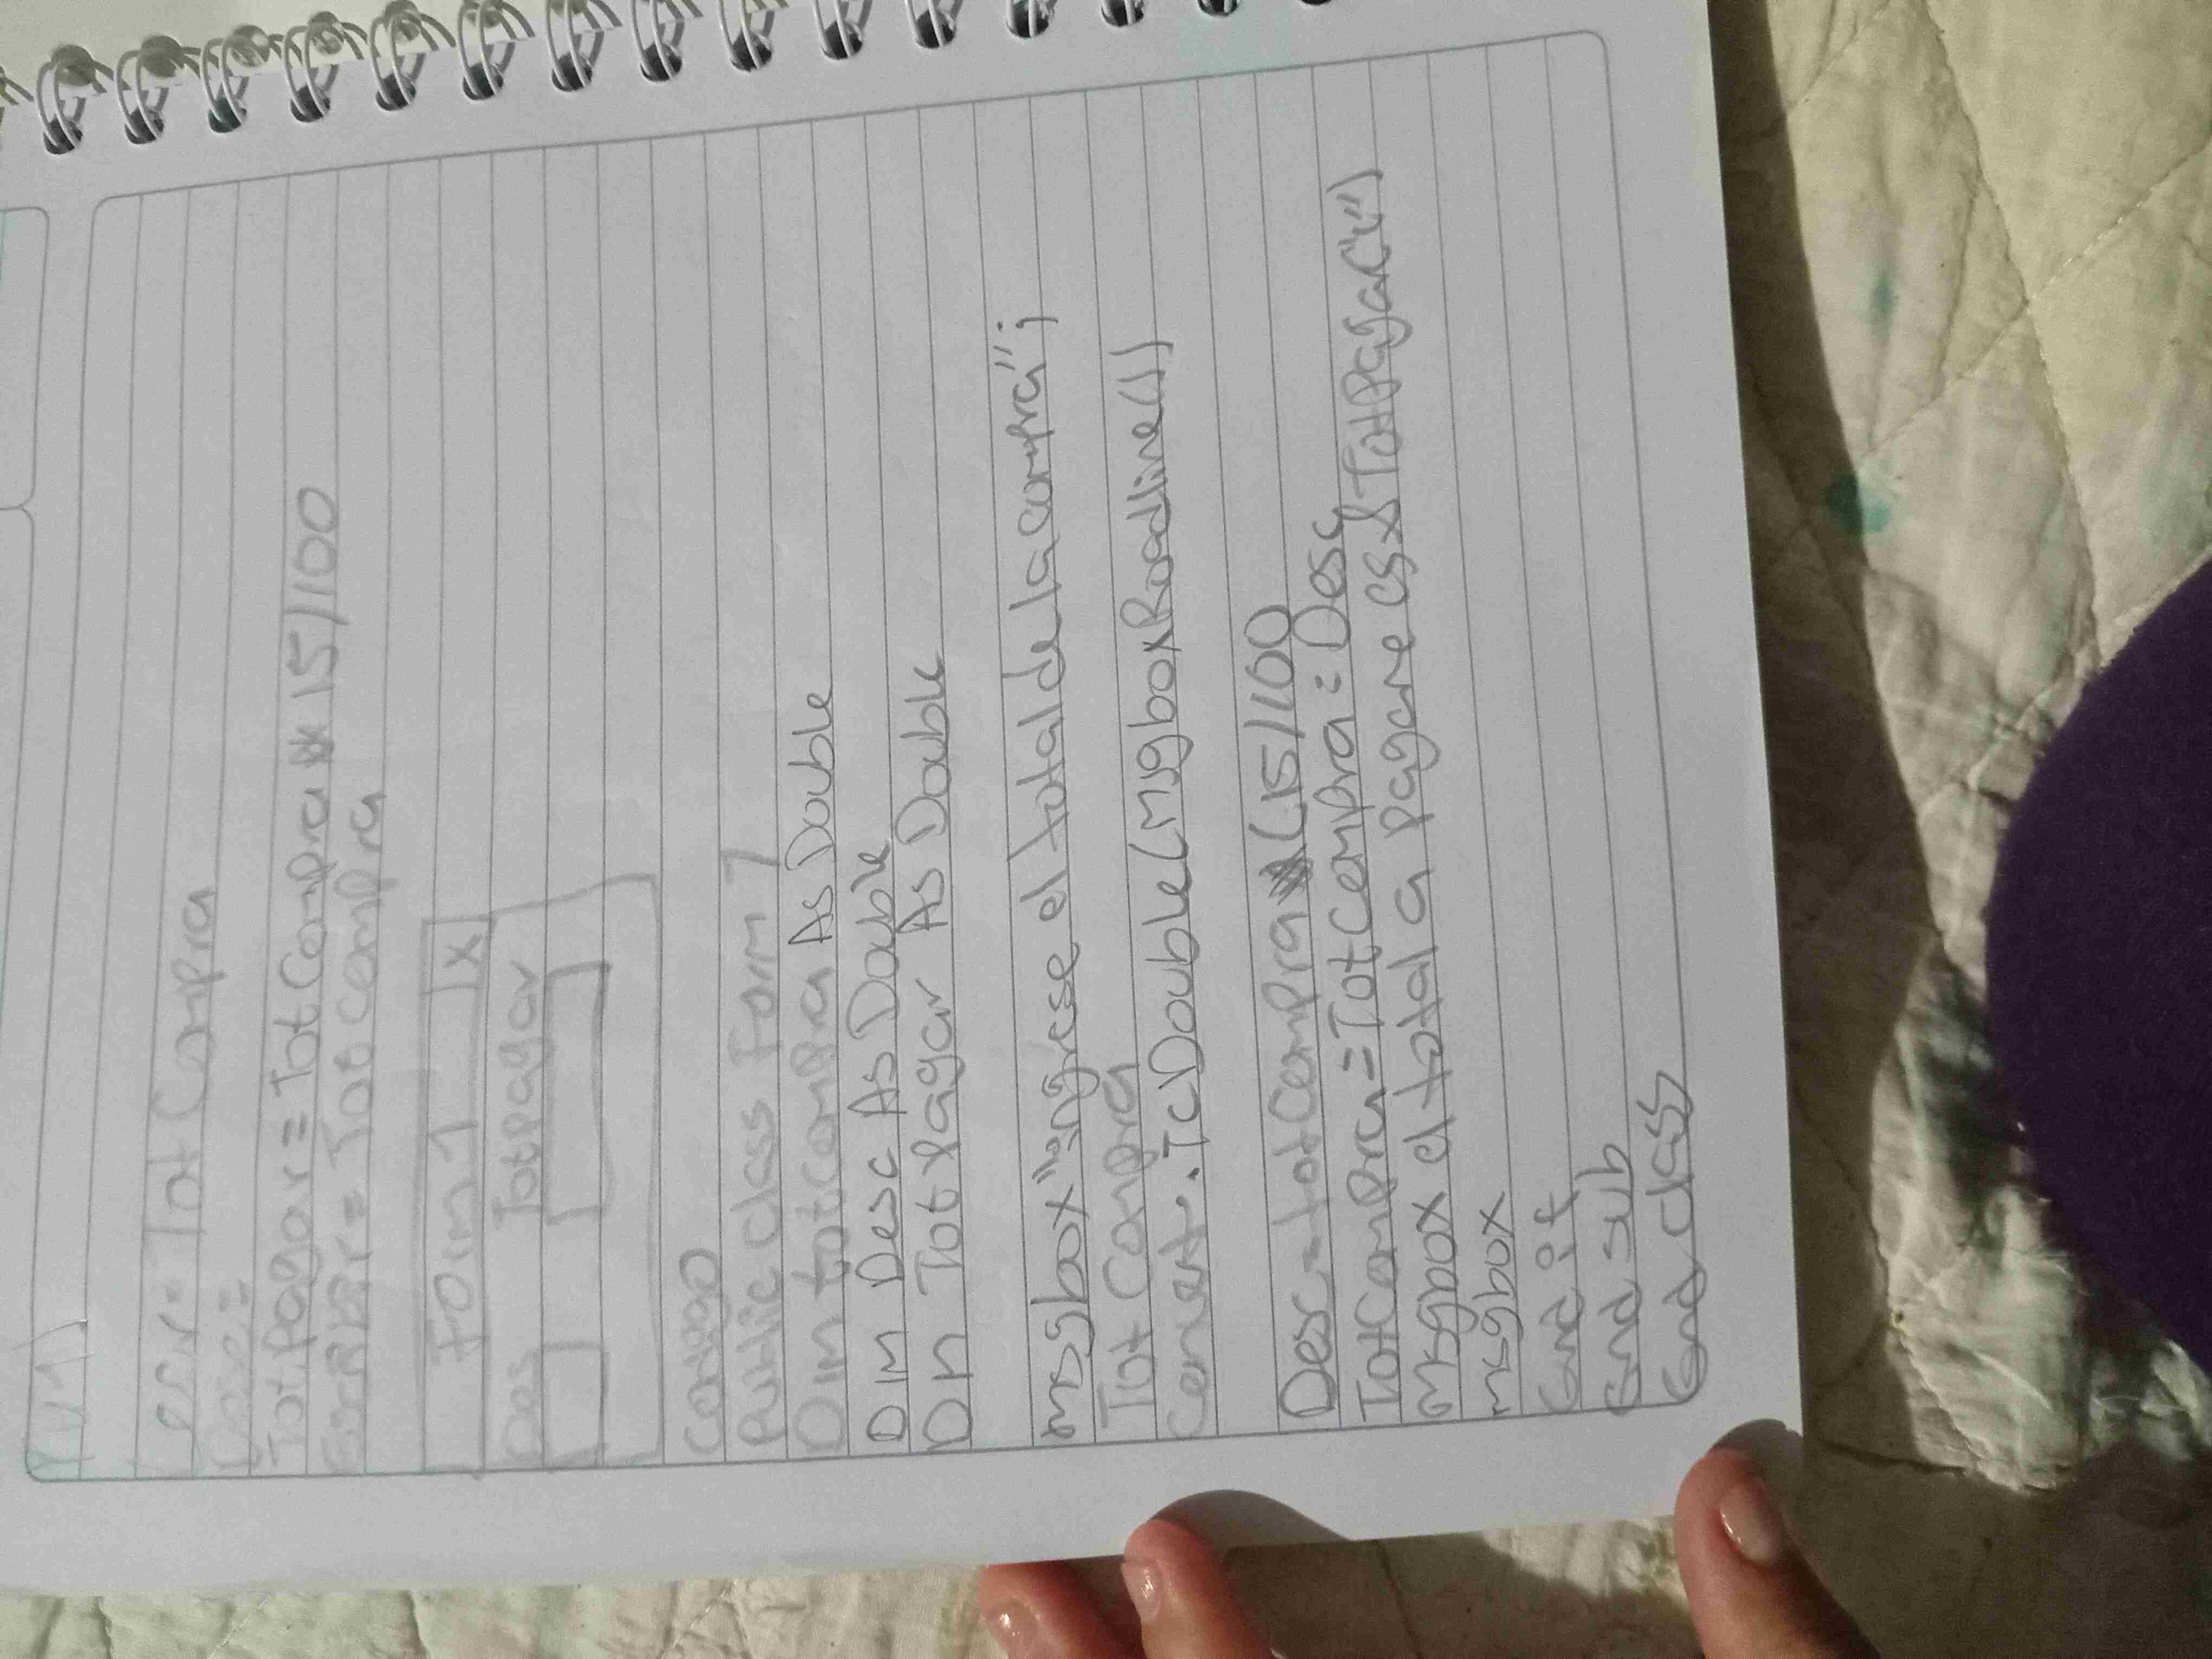 Leer = Tot Compra
Tot.Pagar = Tot Compra * 15/100
= Tot compra
Form 1 X
Des Totpagar
Codigo
Public class Form 1
Dim totcompra As Double
Dim Desc As Double
Dim Tot Pagar As Double
msgbox "ingrese el total de la compra";
Tot Compra
Convert.TcDouble(MsgboxReadline())
Desc = totCompra * (15/100
TotCompra = TotCompra = Desc
Msgbox el total a pagar es & TotPagar("")
msgbox
End if
End sub
End class